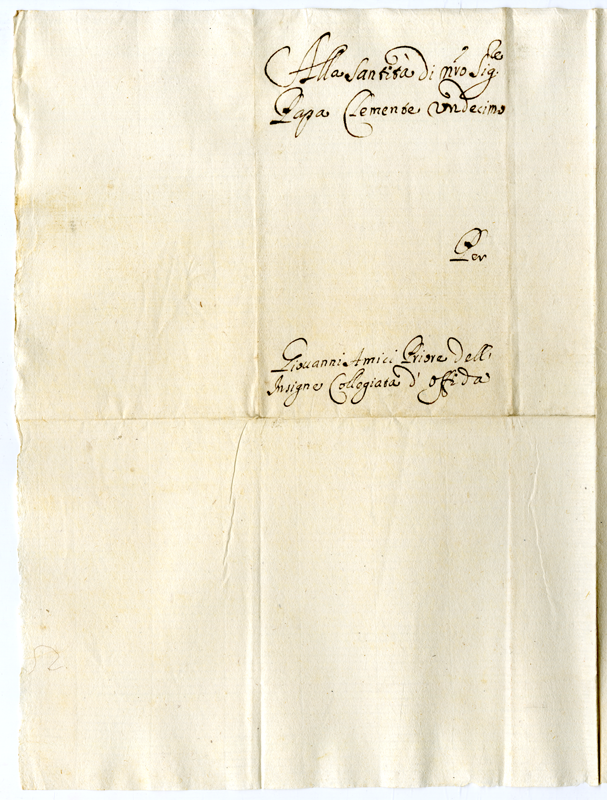 Alla Santità di nr̃o Sig.re
Papa Clemente Undecimo
Per
Giovanni Amici Priore dell'
Insigne Collegiata d' Offida
52